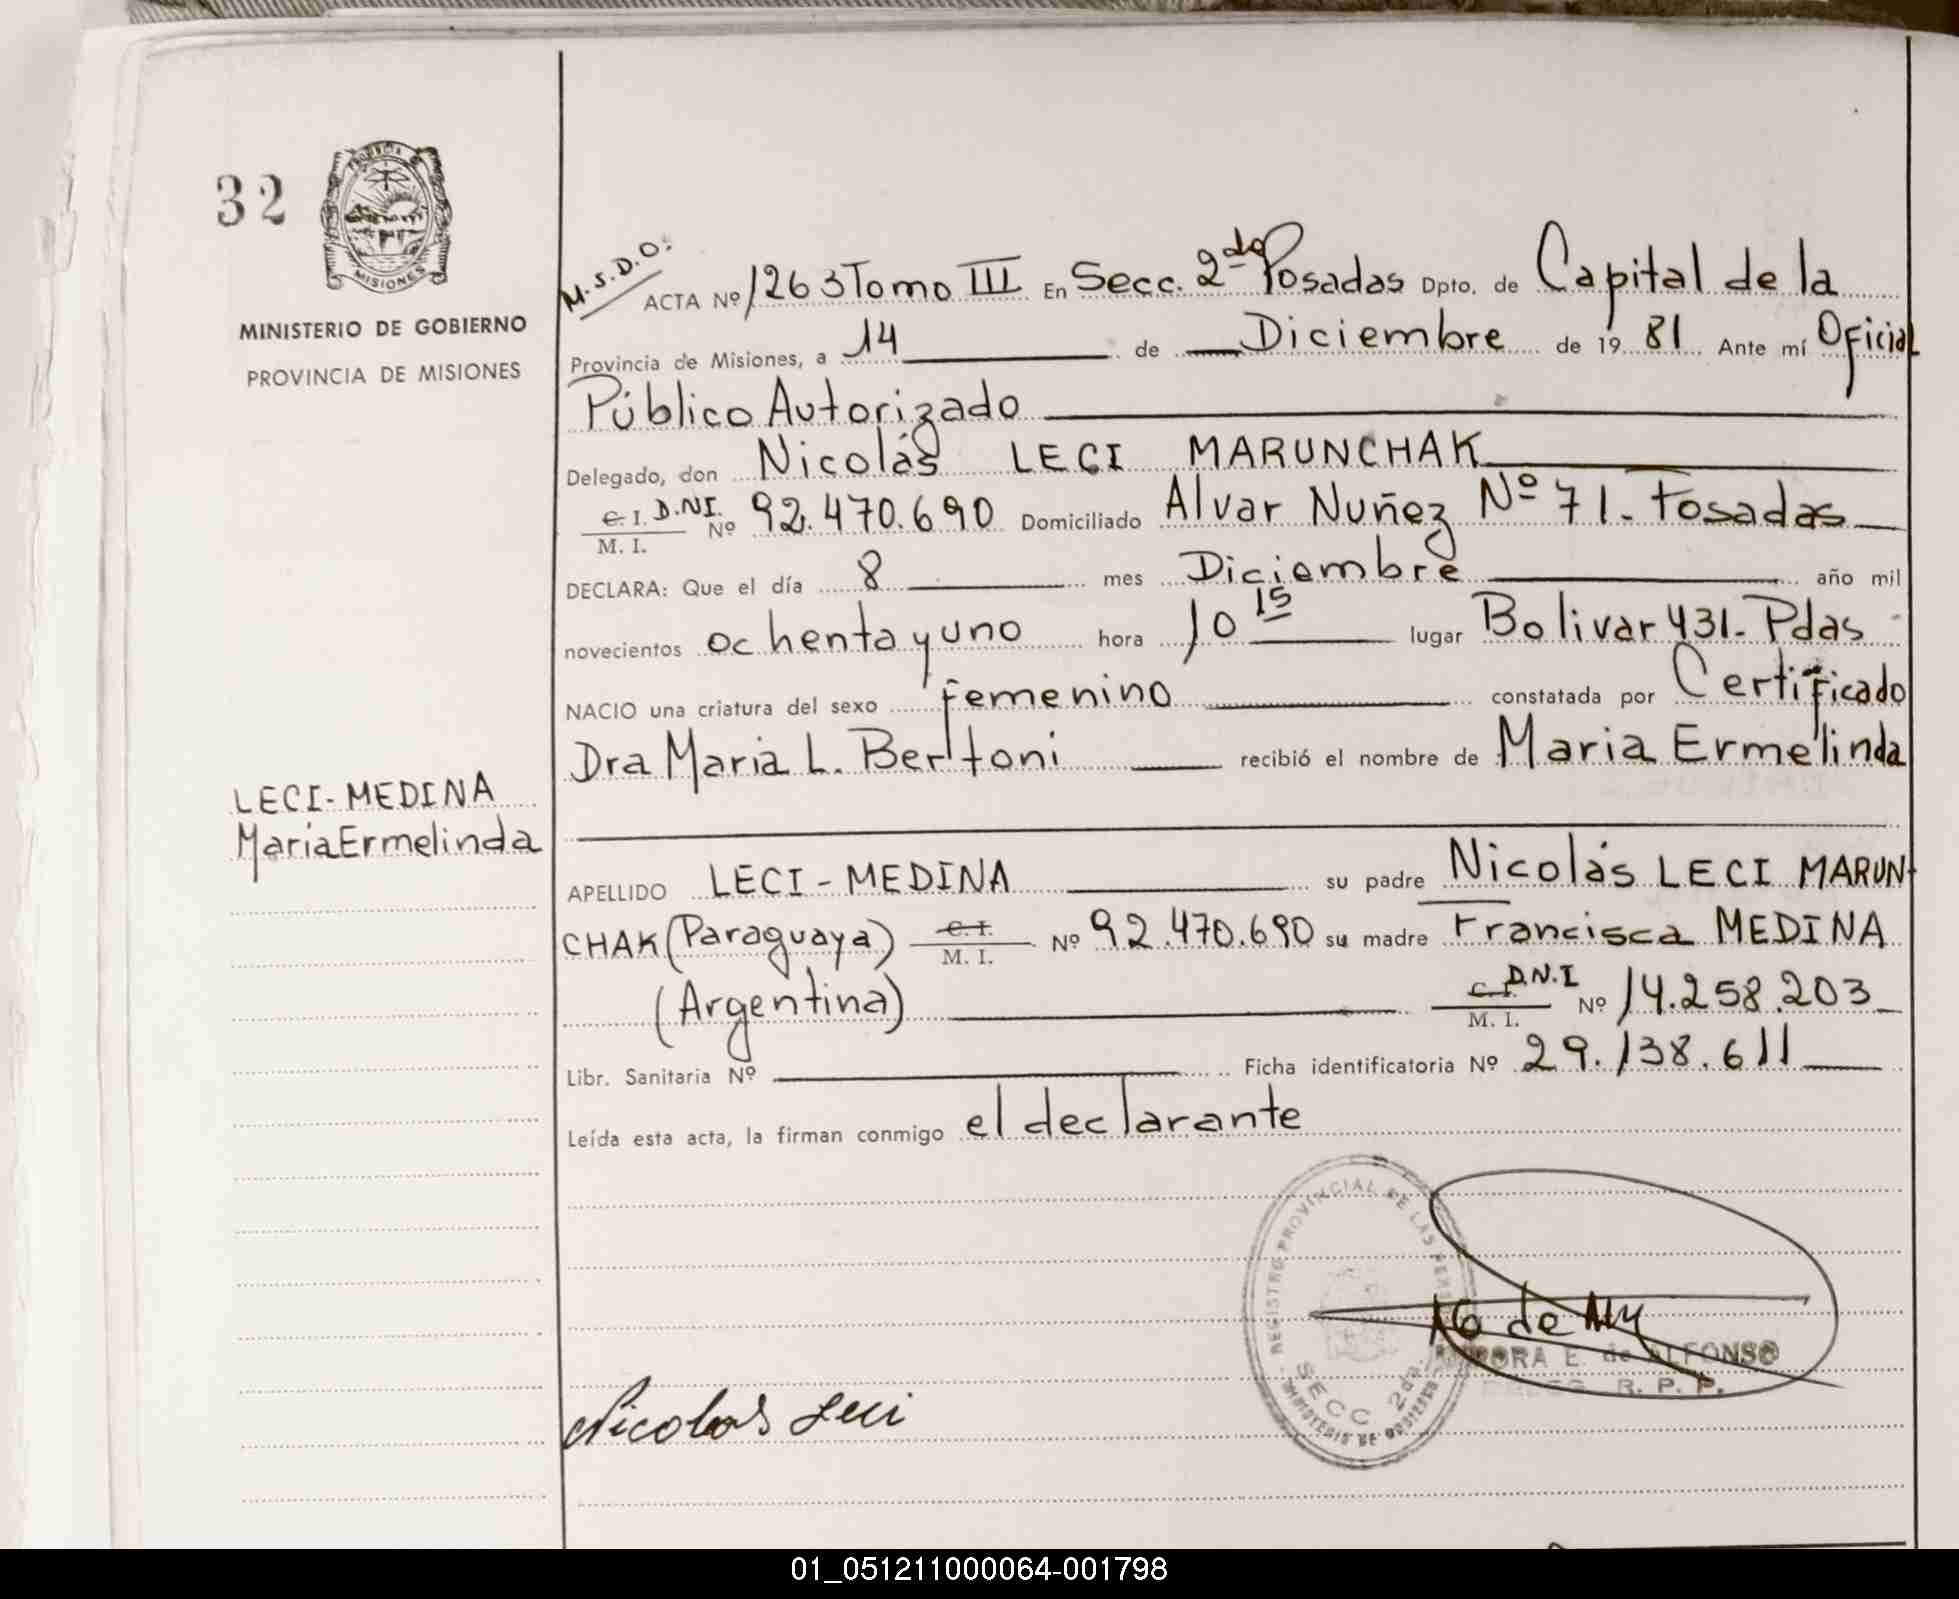 32
PROVINCIA
MISIONES
MINISTERIO DE GOBIERNO
PROVINCIA DE MISIONES
LECI-MEDINA
MariaErmelinda
M.S.D.O.
ACTA Nº 1263 Tomo III En Secc. 2da Posadas Dpto. de Capital de la
Provincia de Misiones, a 14 de Diciembre de 19 81 Ante mí Oficial
Público Autorizado
Delegado, don Nicolás LECI MARUNCHAK
C. I. D.NI. M. I. Nº 92.470.690 Domiciliado Alvar Nuñez Nº 71- Posadas
DECLARA: Que el día 8 mes Diciembre año mil
novecientos ochenta y uno hora 10 15 lugar Bolivar 431- Pdas
NACIO una criatura del sexo femenino constatada por Certificado
Dra Maria L. Bertoni recibió el nombre de Maria Ermelinda
APELLIDO LECI - MEDINA su padre Nicolás LECI MARUN-
CHAK (Paraguaya) C. I. M. I. Nº 92.470.690 su madre Francisca MEDINA
(Argentina) C. I. D.N.I M. I. Nº 14.258.203
Libr. Sanitaria Nº Ficha identificatoria Nº 29.138.611
Leída esta acta, la firman conmigo el declarante
REGISTRO PROVINCIAL DE LAS
SECC 2da.
MINISTERIO DE GOBIERNO
E. de ALFONSO
R. P. P.
Nicolas Leci
01_051211000064-001798